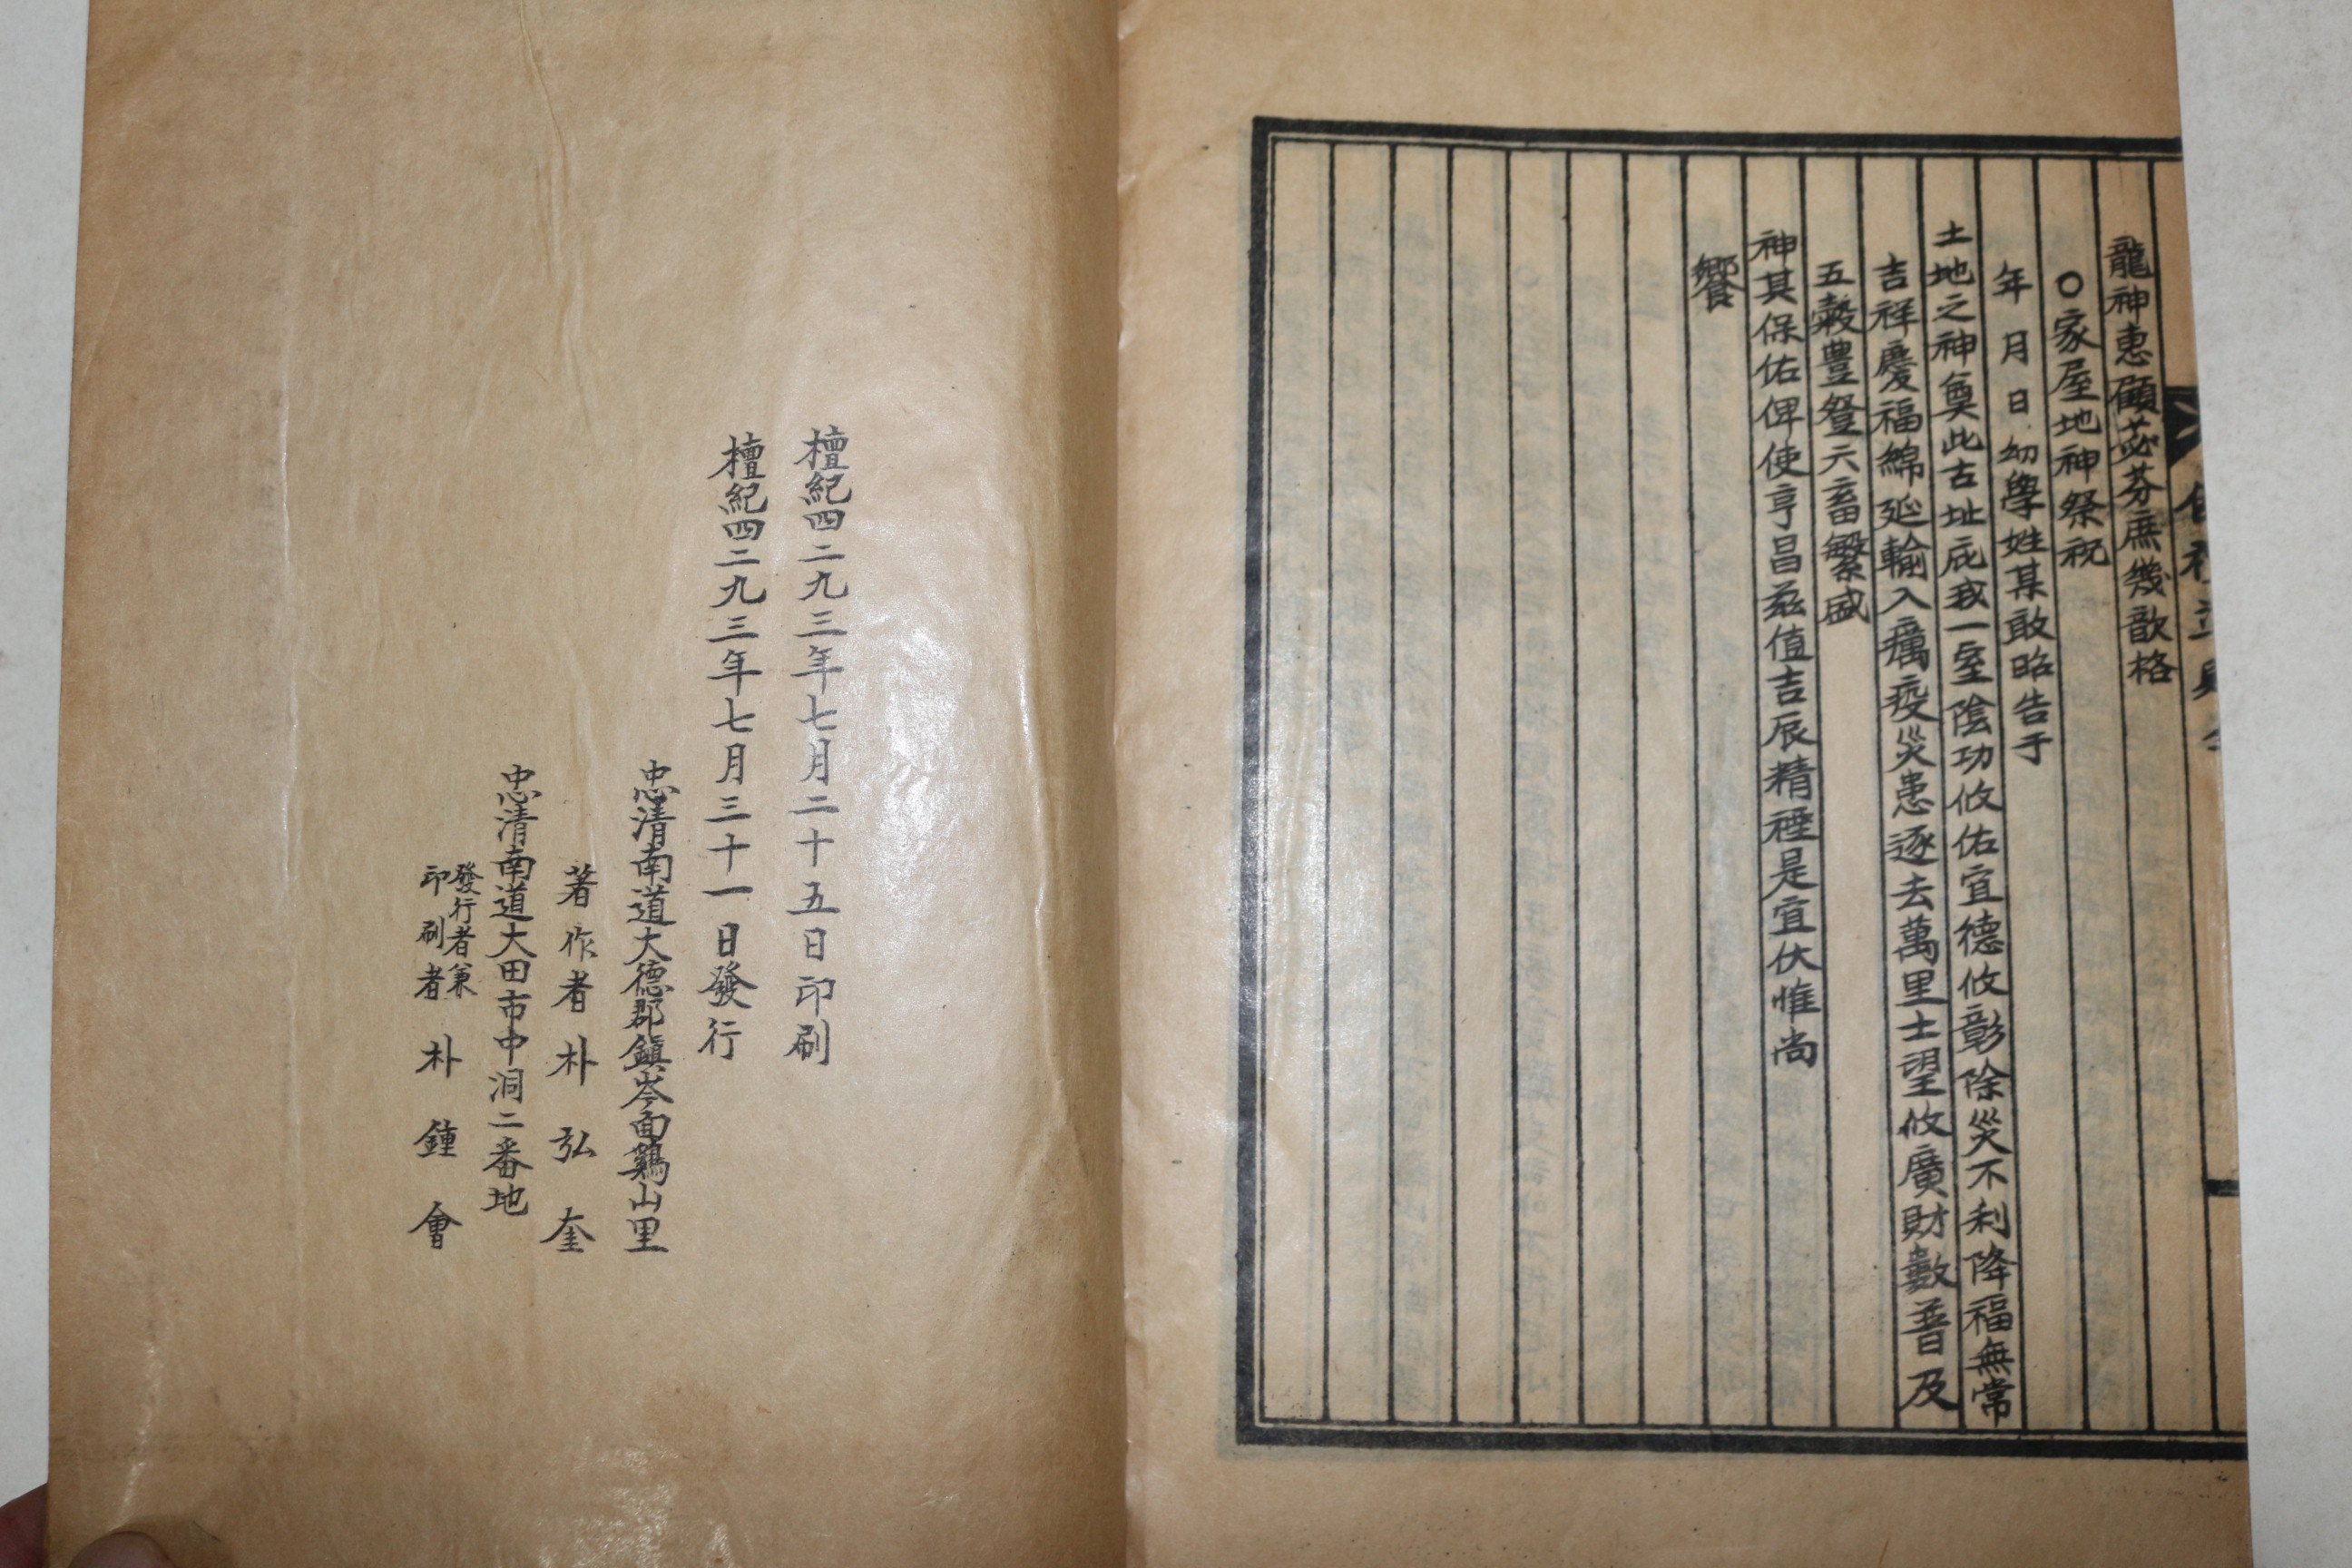 龍神惠顧苾芬庶幾歆格
○家屋地神祭祝
年月日幼學姓某敢昭告于
土地之神奠此古址庇我一室陰功攸佑宜德攸彰除災不利降福無常
吉祥慶福綿延輸入癘疫災患逐去萬里士望攸廣財數普及
五穀豊登六畜繁盛
神其保佑俾使亨昌茲值吉辰精禋是宜伏惟尚
饗
檀紀四二九三年七月二十五日印刷
檀紀四二九三年七月三十一日發行
忠清南道大德郡鎭岑面鷄山里
著作者朴弘奎
忠清南道大田市中洞二番地
發行者兼
印刷者朴鍾會